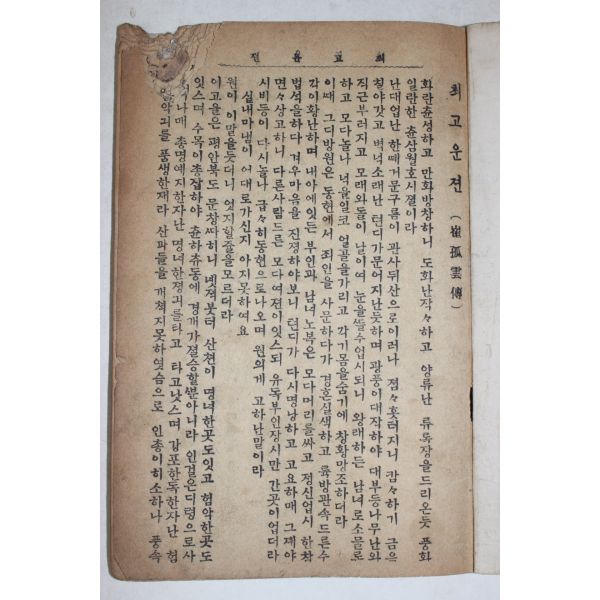 최고운젼
최고운젼 (崔孤雲傳)
화란츈셩하고 만화방창하니 도화난작々하고 양류난 류록장을드리온듯 풍화
일란한 츈삼월호시졀이라
난대업난 한떼거문구름이 관사뒤산으로이러나 졈々훗터지니 캄々하기 금은
칠야갓고 벽녁소래난 텬디가문어지난듯하며 광풍이대작하야 대부등나무난와
직근부러지고 모래와돌이 날이여 눈을뜰수업시되니 왕래하든 남녀로소물론
하고 모다놀나 넉을일코 얼골을가리고 각기몸을숨기에 창황망조하더라
이때 그디방원은 동헌에서 죄인을 사문하다가 경혼실색하고 륙방관속드른수
각이황난하며 내아에잇든 부인과 남녀노복은 모다머리를싸고 정신업시 한참
법석을하다 겨우마음을 진졍하야보니 텬디가 다시명낭하고 고요하매 그졔야
면々상고하니 다른사람드른 모다여젼이잇스되 유독부인장시만 간곳이업더라
시비등이 다시놀나 급々히동헌으로나오며 원의게 고하난말이라
실내마님이 어대로가신지 아지못하여요
원이 이말을듯더니 엇지할줄을모르더라
이고을은 평안북도 문창싸히니 녯젹붓터 산쳔이 명녀한곳도잇고 험악한곳도
잇스며 수목이총잡하야 츈하츄동에 경개가졀승할뿐아니라 인걸은디령으로사
나매 총명예지한자난 명녀한졍긔를타고 타고낫스며 강포한독한자난 험
악긔를 품생한재라 산파들을 개쳐지못하엿슴으로 인총이히소하나 풍속